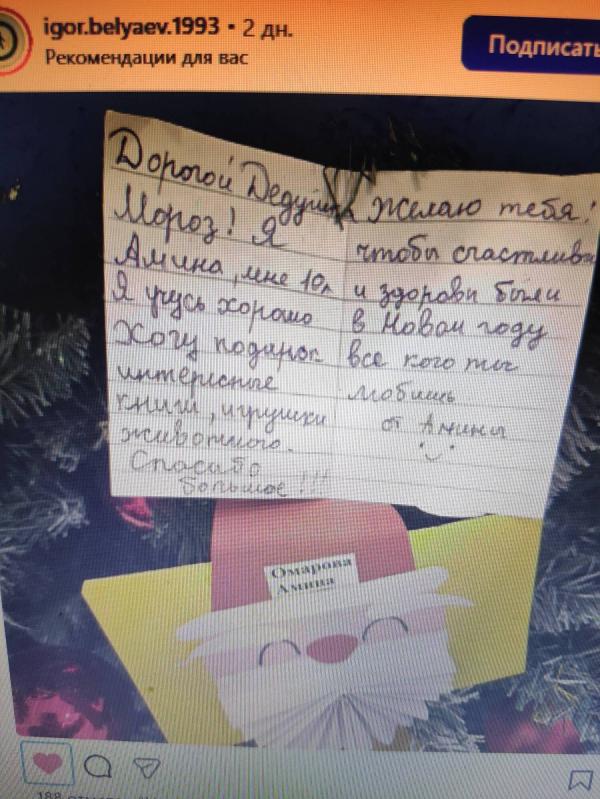 igor.belyaev.1993 • 2 дн.
Рекомендации для вас
Подписать
Дорогой Дедушка
Мороз! Я
Амина, мне 10л
Я учусь хорошо
Хочу подарок
интересные
книги, игрушки
животного.
Спасибо
большое!!!
Желаю тебя!
чтобы счастливы
и здоровы были
в Новом году
все кого ты
любишь
от Амины
Омарова
Амина
188